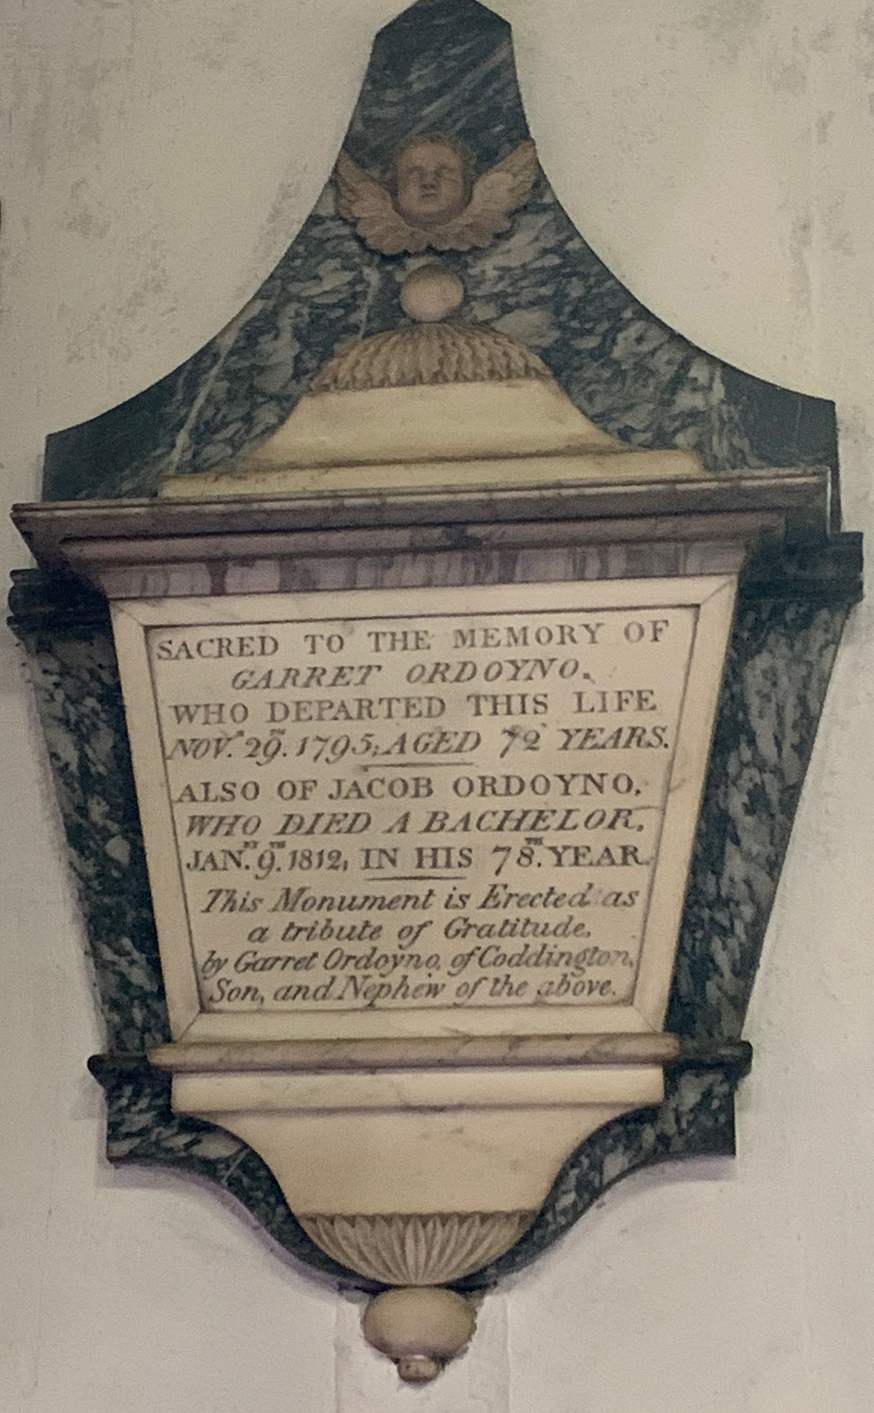 SACRED TO THE MEMORY OF
GARRET ORDOYNO.
WHO DEPARTED THIS LIFE
NOV.R 29.TH 1795, AGED 72 YEARS.
ALSO OF JACOB ORDOYNO,
WHO DIED A BACHELOR,
JAN.RY 9.TH 1812, IN HIS 78.TH YEAR.
This Monument is Erected as
a tribute of Gratitude,
by Garret Ordoyno, of Coddington,
Son, and Nephew of the above.